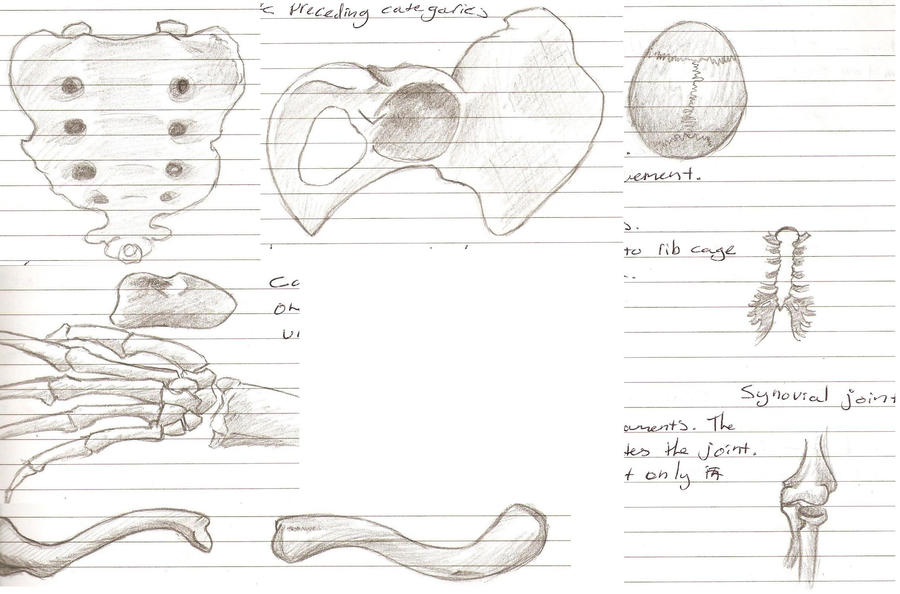 c preceding categories
vement.
s.
to rib cage
Ca
on
un
Synovial joint
aments. The
tes the joint.
t only